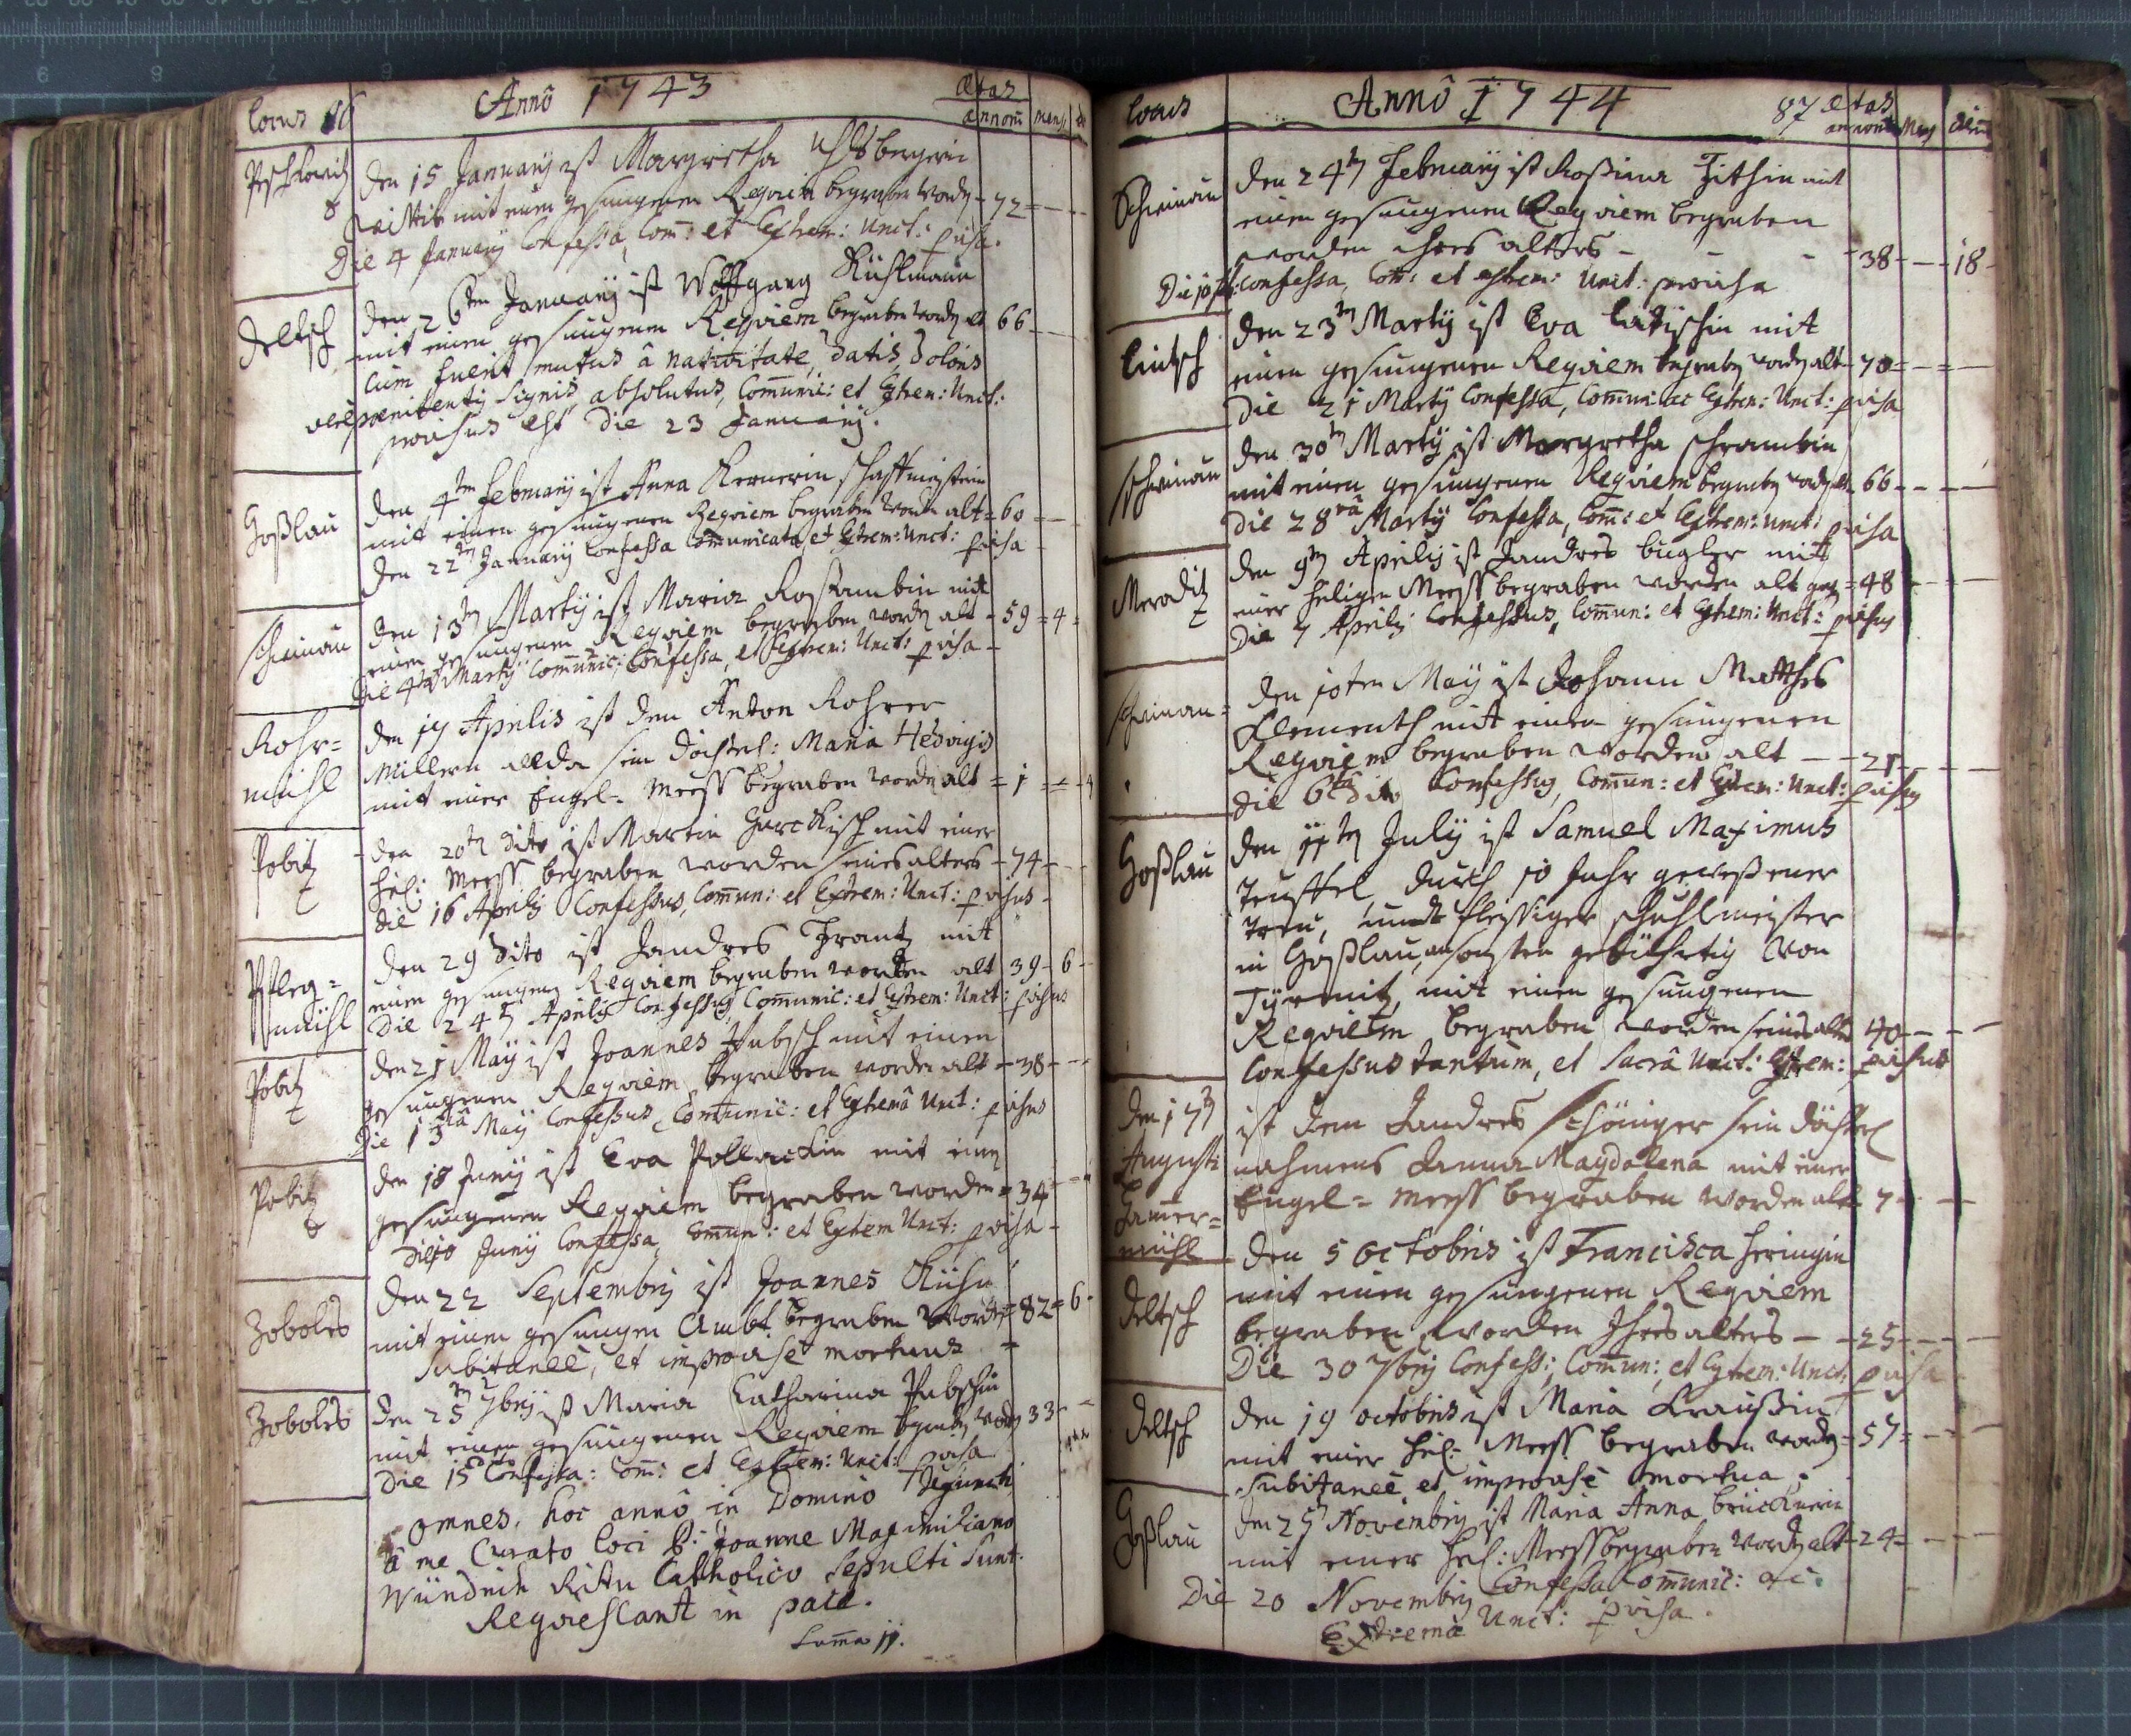 Locus 86 Annô 1743 Ætas
annorum Mens:
den 15 January ist Margretha
mit einen gesungenen Requiem begraben worden 72
Die 4 January Confessa, Com: et Extrem: Unct: pvisa.
Deltsch den 26ten January ist Wolffgang Kühlmann
mit einen gesungenen Requiem begraben worden alt 66
Cum fuerit mutus â nativitate, datis doloris
poenitentis signis absolutus, Communic: et Extrem: Unct:
provisus est die 23 January.
Goßlau den 4ten February ist Anna Kernerin
mit einen gesungenen Requiem begraben worden alt 60
den 22ten January Confessa Communicata et Extrem: Unct: pvisa
Scheinau den 13ten Marty ist Maria mit
einen gesungenen Requiem begraben worden alt 59 4
Die 4ta Marty Communic: Confessa, et Extrem: Unct: pvisa
Rohr= den 17 Aprilis ist den Anton Rohrer
mühl Müllern allda sein döchterl: Maria Hedvigis
mit einer Engel= Mess begraben worden alt 1 4
Pobitz den 20ten dito ist Martin mit einer
heil: Mess begraben worden seines alters 74
die 16 Aprilis Confessus, Commun: et Extrem: Unct: pvisus
Pfleg= den 29 dito ist Jandres Frantz mit
mühl einen gesungenen Requiem begraben worden alt 39 6
Die 24ten Aprilis Confessus, Communic: et Extrem: Unct: pvisus
Pobitz den 21 May ist Joannes Hubsch mit einen
gesungenen Requiem begraben worden alt 38
Die 13tiâ May Confessus, Communic: et Extremâ Unct: pvisus
Pobitz den 18 Juny ist Eva Pollackin mit einen
gesungenen Requiem begraben worden 34
Die 10 Juny Confessa, Commun: et Extrem Unct: pvisa
Zoboles den 22 Septembris ist Joannes Kühn
mit einem gesungen Ambt begraben worden 82 6
subitaneê, et improvisê mortuus
Zoboles den 25ten 7bris ist Maria Catharina Pubschin
mit einen gesungenen Requiem begraben worden 33
Die 15 Confessa: Com: et Extrem: Unct: pvisa
Omnes, hoc annô in Domino defuncti
â me Curato Loci P: Joanne Maximiliano
Wündrich Ritu Catholico sepulti sunt.
Requiescant in pace.
Summa 11.
Locus Annô 1744 87 Ætas
annorum Mens dies
Scheinau den 24ten February ist Rosina mit
einen gesungenen Requiem begraben
worden ihres alters 38 18
Die 10 Confessa, Com: et extrem: Unct: provisa
Lintsch den 23ten Marty ist Eva mit
einen gesungenen Requiem begraben worden alt 70
Die 21 Marty Confessa, Commun: ac Extrem: Unct: pvisa
Scheinau den 30ten Marty ist Margretha Schrambin
mit einen gesungenen Requiem begraben worden alt 66
Die 28vâ Marty Confessa, Com: et Extrem: Unct: pvisa
Meroditz den 9ten Aprilis ist Jandres Bugler mit
einer heiligen Mess begraben worden alt 48
Die 7 Aprilis Confessus, Commun: et Extrem: Unct: pvisus
Scheinau= den 10ten May ist Johann Matthes
Klementh mit einen gesungenen
Requiem begraben worden alt 21
Die 6ta dito Confessus, Commun: et Extrem: Unct: pvisus
Goßlau den 11ten July ist Samuel Maximus
Teuffel, durch 10 Jahr geweßener
treu, undt fleissiger schuhlmeister
in Goßlau, ansonsten gebührtig von
mit einen gesungenen
Requiem begraben worden seines alters 40
Confessus tantum, et sacrâ Unct: Extrem: pvisus
den 17ten ist dem Jandres Schöninger sein döchterl
Augusti nahmens Janna Magdalena mit einer
Engel= Mess begraben worden alt 7
mühl
Deltsch den 5 Octobris ist Francisca Heringin
mit einen gesungenen Requiem
begraben worden Ihres alters 25
Die 30 7bris Confess:, Commun:, et Extrem: Unct: pvisa
Deltsch den 19 Octobris ist Maria Kraußin
mit einer heil: Mess begraben worden 57
subitaneê et improvisê mortua.
Goßlau den 25ten Novembris ist Maria Anna Brücknerin
mit einer heil: Mess begraben worden alt 24
Die 20 Novembris Confessa Communic: ac
Extremâ Unct: pvisa.